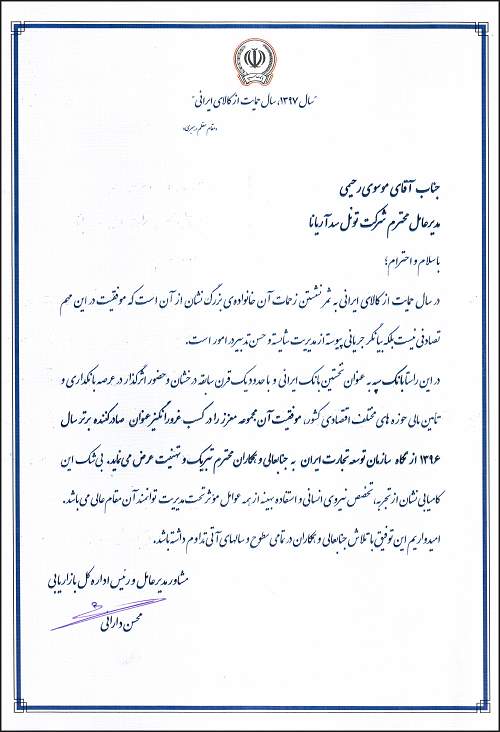 "سال ۱۳۹۷، سال حمایت از کالای ایرانی"
«مقام معظم رهبری»
جناب آقای موسوی رحیمی
مدیرعامل محترم شرکت تونل سد آریانا
با سلام و احترام؛
در سال حمایت از کالای ایرانی به ثمر نشستن زحمات آن خانواده‌ی بزرگ نشان از آن است که موفقیت در این مهم
تصادفی نیست بلکه بیانگر جریانی پیوسته از مدیریت شایسته و حسن تدبیر در امور است.
در این راستا بانک سپه به عنوان نخستین بانک ایرانی و با حدود یک قرن سابقه درخشان و حضور اثرگذار در عرصه بانکداری و
تأمین مالی حوزه های مختلف اقتصادی کشور، موفقیت آن مجموعه معزز را در کسب غرورانگیز عنوان صادرکننده برتر سال
۱۳۹۶ از نگاه سازمان توسعه تجارت ایران به جنابعالی و همکاران محترم تبریک و تهنیت عرض می نماید. بی شک این
کامیابی نشان از تجربه، تخصص نیروی انسانی و استفاده بهینه از همه عوامل مؤثر تحت مدیریت توانمند آن مقام عالی می باشد.
امیدواریم این توفیق با تلاش جنابعالی و همکاران در تمامی سطوح و سالهای آتی تداوم داشته باشد.
مشاور مدیرعامل و رئیس اداره کل بازاریابی
محسن دارائی